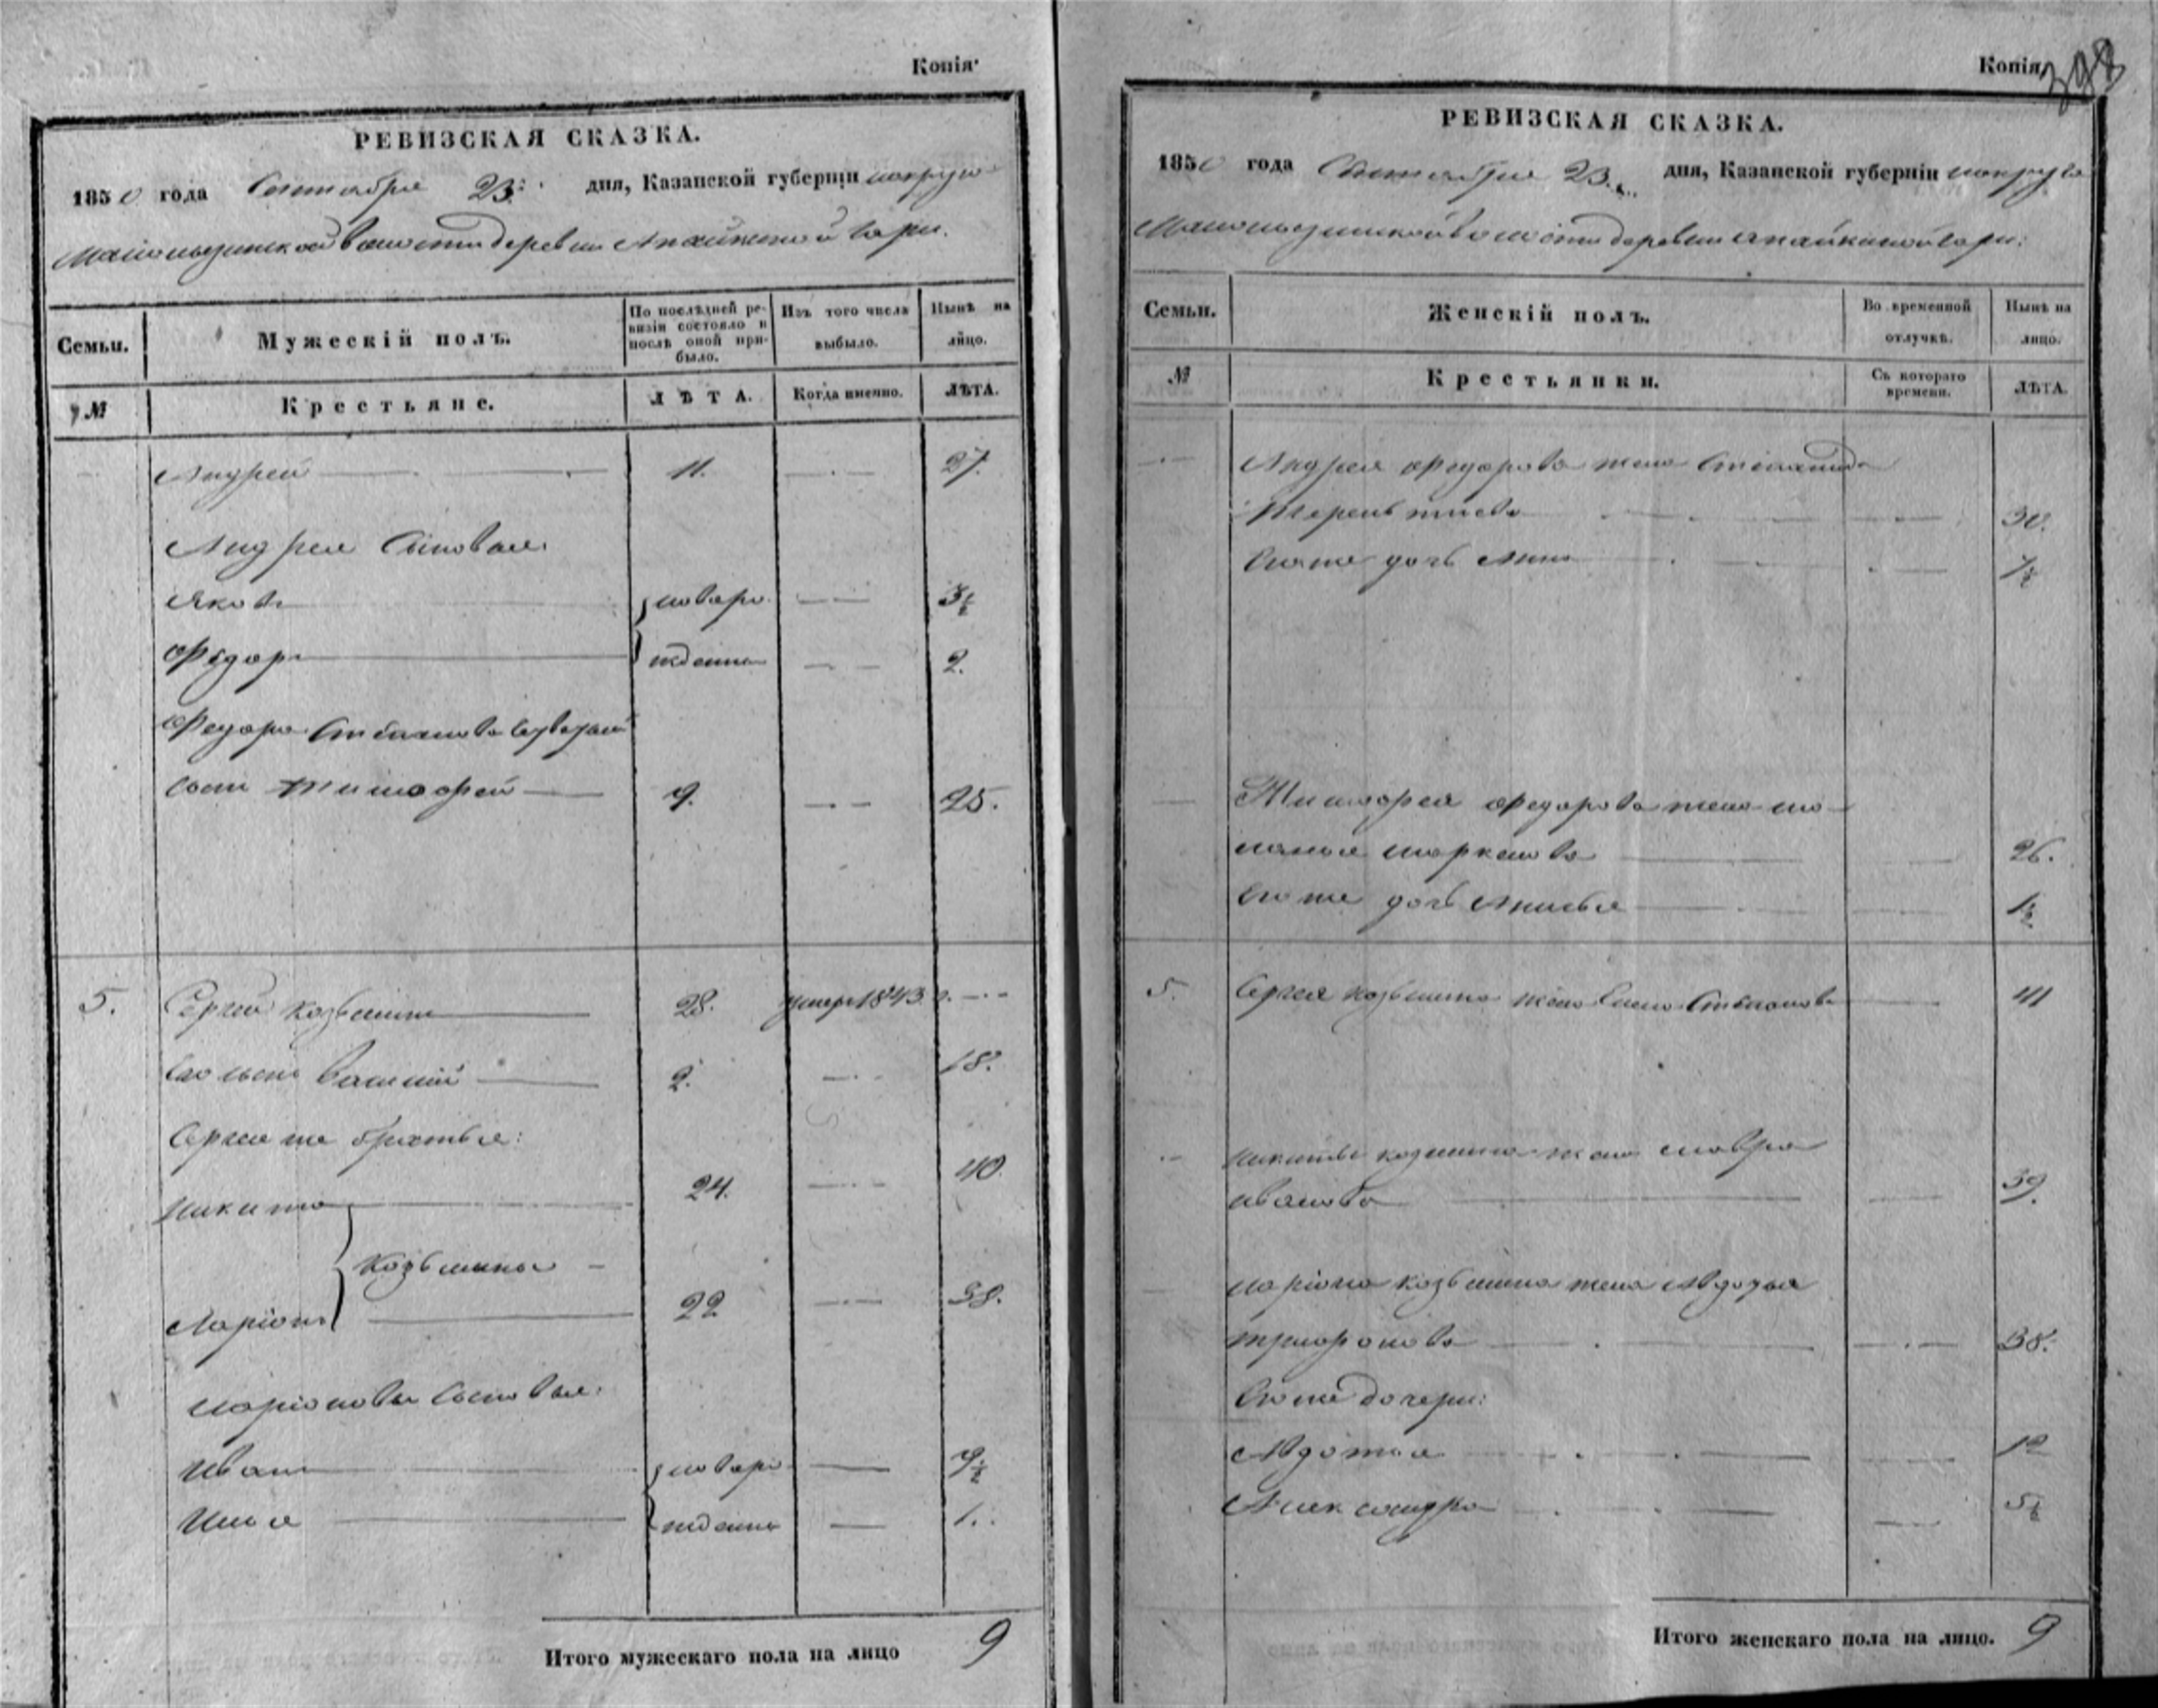 Копія
РЕВИЗСКАЯ СКАЗКА.
1850 года Сентября 23 дня, Казанской губерніи
волости деревни Апайкиной Гари.
Семьи.
Мужескій полъ.
По послѣдней ревизіи состояло и послѣ оной прибыло.
Изъ того числа выбыло.
Нынѣ на лицо.
№
Крестьяне.
ЛѢТА.
Когда именно.
ЛѢТА.
Андрей 11. 27.
Андрея Сыновья
Яковъ новоро 3½
Федоръ жденны 2.
Федора Степанова
сынъ Тимофей 9. 25.
5. Сергей Козьминъ 28. умеръ 1843 г.
Сынъ Василий 2. 18.
Сергея же братья:
Никита 24. 40.
Козьмины
Ларіонъ 22 38.
Ларіоновы Сыновья:
Иванъ новоро 9½
Илья жденны 1.
Итого мужескаго пола на лицо 9
Копія
398
РЕВИЗСКАЯ СКАЗКА.
1850 года Сентября 23 дня, Казанской губерніи
волости деревни Апайкиной Гари:
Семьи.
Женскій полъ.
Во временной отлучкѣ.
Нынѣ на лицо.
№
Крестьянки.
Съ котораго времени.
ЛѢТА.
Андрея Федорова жена Степанида
Терентьева 30.
Его же дочь Анна ½
Тимофея Федорова жена Ма-
ланья Маркелова 26.
Его же дочь 1½
5. Сергея Козьмина жена Елена Степанова 41
Никиты Козмина жена Мавра
Иванова 39.
Ларіона Козьмина жена Авдотья
Трифонова 38.
Его же дочери:
Авдотья 12
Александра 5½
Итого женскаго пола на лицо. 9